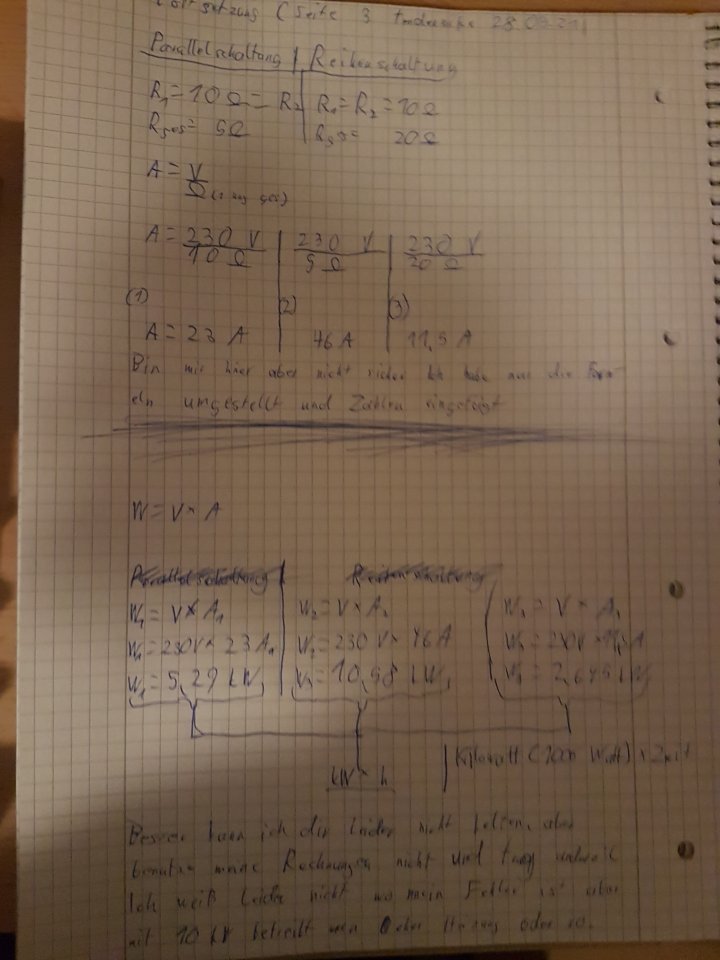 (Seite 3 28.09.21
Parallelschaltung | Reihenschaltung
R₁=10Ω=R₂ | R₁=R₂=10Ω
Rges= 5Ω | Rges= 20Ω
A=V/Ω
A= 230 V/10 Ω | 230 V/5 Ω | 230 V/20 Ω
(1) (2) (3)
A=23 A | 46 A | 11,5 A
Bin mir hier aber nicht sicher Ich habe nur die Form-
eln umgestellt und Zahlen eingefügt
W=V× A
Parallelschaltung | Reihenschaltung
W₁=V×A₁ | W₂=V×A₂ | = V × A
W₁=230V×23A₁ | =230 V×46A | V×
W₁=5,29 kW | =10,58 kW | 2,645 kW
kW × h | Kilowatt (1000 Watt) × Zeit
Besser kann ich dir leider nicht helfen, aber
meine Rechnungen nicht und
Ich weiß leider nicht wo mein Fehler ist aber
mit 10 kW betreibt man oder so.